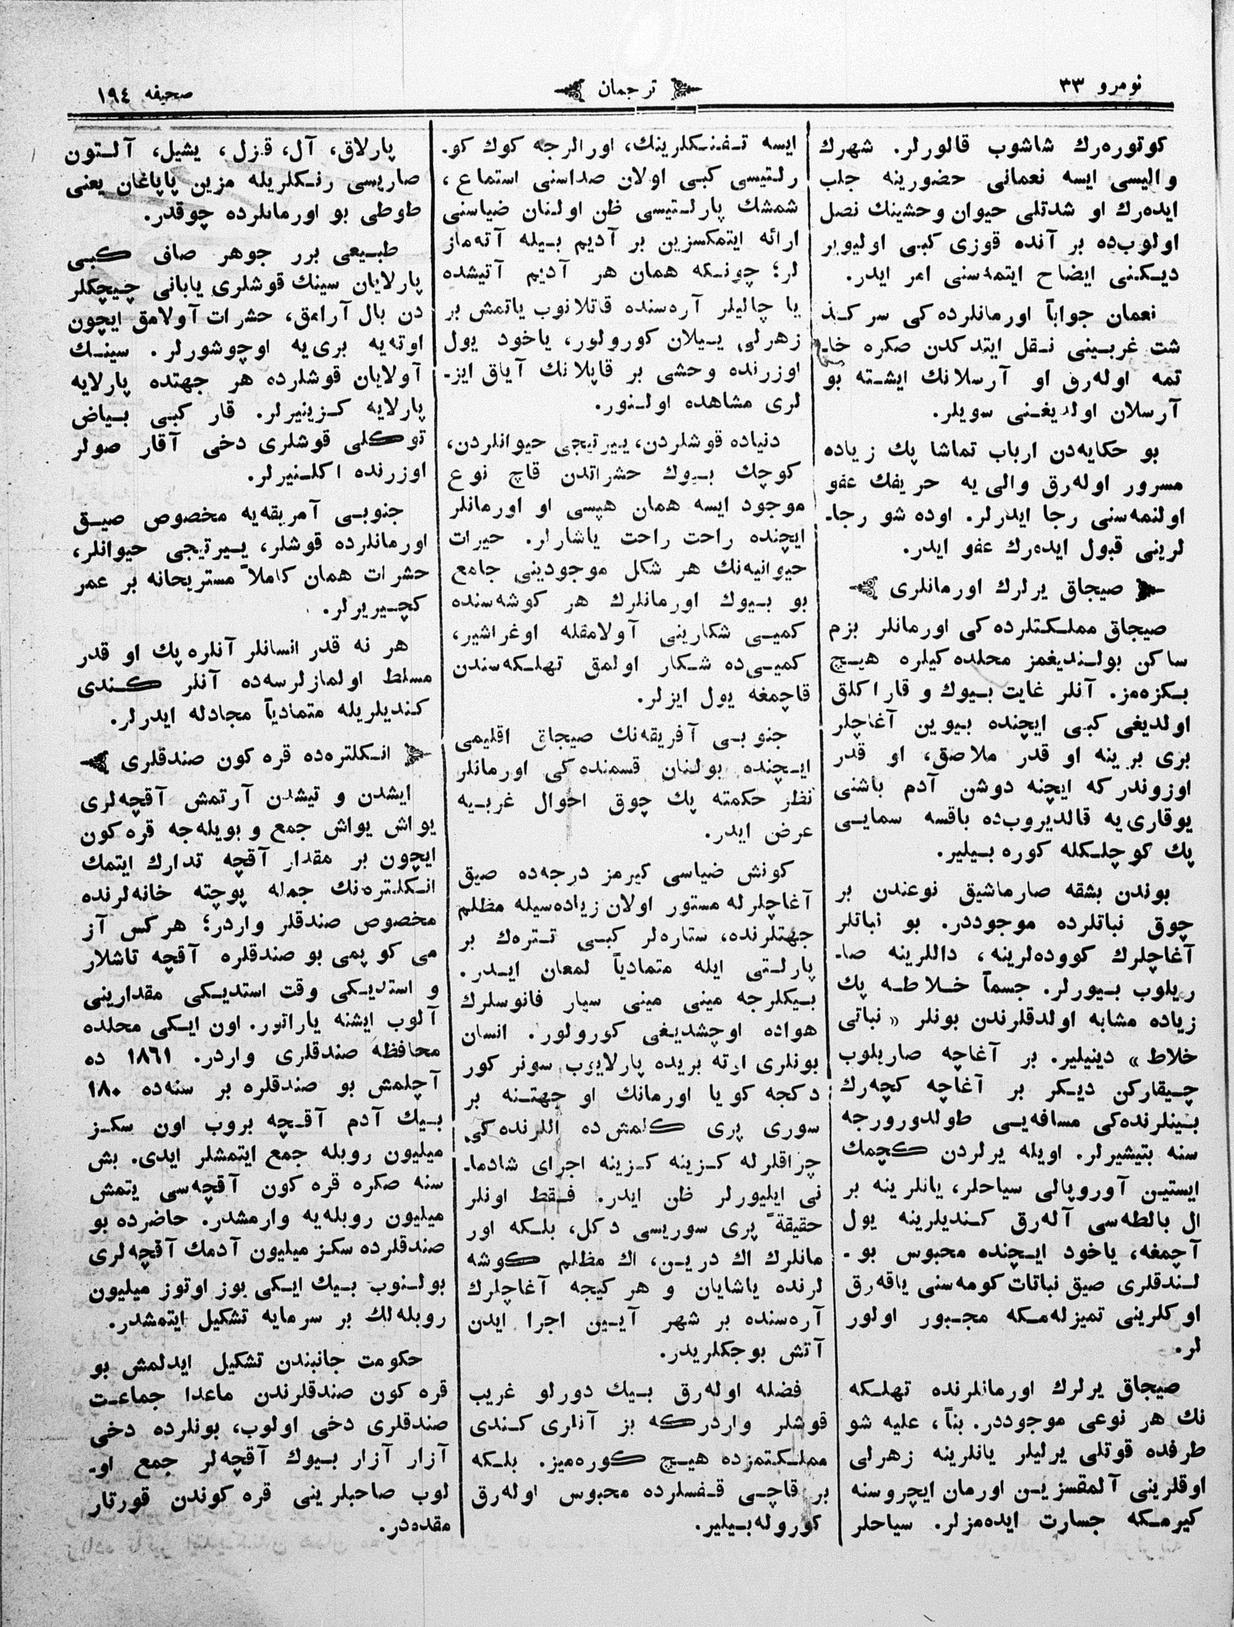 نومرو ٣٣
ترجمان
صحیفه ١٩٤
كوتوره‌رك شاشوب قالورلر. شهرك
والیسی ایسه نعمانی حضورینه جلب
ایده‌رك او شدتلی حیوان وحشینك نصل
اولوب‌ده بر آنده قوزی كبی اولیویر
دیكنی ایضاح ایتمه‌سنی امر ایدر.
نعمان جواباً اورمانلرده‌كی سر كـذ
شت غریبینی نـقل ایتدكدن صكره خا
تمه اوله‌رق او آرسلانك ایشـته بو
آرسلان اولدیغـنی سویلر.
بو حكایه‌دن ارباب تماشا پك زیاده
مسرور اوله‌رق والی‌یه حریفك عفو
اولنمه‌سنی رجا ایدرلر. اوده شو رجا-
لرینی قبول ایده‌رك عفو ایدر.
صیجاق یرلرك اورمانلری
صیجاق مملـكـتلرده‌كی اورمانلر بزم
ساكن بولـندیغمز محلده‌كیلره هیـچ
بـكزه‌مز. آنلر غایت بـیوك و قارا كلق
اولدیغی كبی ایچنده بیوین آغاچلر
بری برینه او قدر ملاصق، او قدر
اوزوندر كه ایچنه دوشن آدم باشنی
یوقاری‌یه قالدیروب‌ده باقسه سمایـی
پك كوچلـكله كوره بـیلیر.
بوندن بشقه صارماشیق نوعندن بر
چوق نباتلرده موجوددر. بو نباتلر
آغاچلرك كووده‌لرینه، داللرینه صا-
ریلوب بـیورلر. جسماً خـلاطـه پك
زیاده مشابه اولدقلرندن بونلر « نباتی
خلاط » دینیلیر. بر آغاچه صاریلوب
چـیقاركن دیـكر بر آغاچه كچه‌رك
بـینلرنده‌كی مسافه‌یـی طولدورورجه
سنه بتیشیرلر. اویله یرلردن كـچمك
ایستین آوروپالی سیاحلر، یانلرینه بر
ال بالطه‌سی آله‌رق كـندیلرینه یول
آچمغه، یاخود ایـچنده محبوس بو -
لـندقلری صیق نباتات كومه‌سنی یاقه‌رق
اوكلرینی تمیزله‌مـكه مجـبور اولور
لر.
صیجاق یرلرك اورمانلرنده تهلـكه
نك هر نوعی موجوددر. بناً، علیه شو
طرفده قوتلی یرلیلر یانلرینه زهرلی
اوقلرینی آلمقسزیـن اورمان ایچروسنه
كیرمـكه جسارت ایده‌مزلر. سیاحلر
ایسه تـفـنـكلرینك، اورالرجه كوك كو-
رلـتیسی كبی اولان صداسنی استماع،
شمشك پارلـتیسی ظن اولـنان ضیاسنی
ارائه ایتمكسزین بر آدیم بـیله آته‌ماز
لر؛ چونـكه همان هر آدیم آتیشده
یا چالیلر آره‌سنده قاتلانوب یاتمش بر
زهرلی یـیلان كورولور، یاخود یول
اوزرنده وحشی بر قاپلانك آیاق ایز-
لری مشاهده اولـنور.
دنیاده قوشلردن، یـیرتیجی حیوانلردن،
كوچك بـیوك حشراتدن قاچ نوع
موجود ایسه همان هپسی او اورمانلر
ایچنده راحت راحت یاشارلر. حیرات
حیوانیه‌نك هر شكل موجودینی جامع
بو بـیوك اورمانلرك هر كوشه‌سنده
كمیـی شكارینی آولامقله اوغراشیر،
كمیـی‌ده شـكار اولمق تهلـكه‌سندن
قاچمغه یول ایزلر.
جنوبـی آفریقه‌نك صیجاق اقلیمی
ایـچنده بولـنان قسمنده‌كی اورمانلر
نظر حكمته پك چوق احوال غریـیه
عرض ایدر.
كونش ضیاسی كیرمز درجه‌ده صیق
آغاچلرله مستور اولان زیاده‌سیله مظلم
جهتلرنده، ستاره‌لر كبـی تـتره‌ك بر
پارلـتی ایله متمادیاً لمعان ایـدر.
بـیكلرجه مینی مینی سیار فانوسلرك
هواده اوچشدیغی كورولور. انسان
بونلری اوته بریده پارلایوب سونر كور
دكجه كویا اورمانك او جهتـنه بر
سوری پری كـلمش‌ده اللرنده‌كی
چراقلرله كـزینه كـزینه اجرای شادما-
نی ایلیورلر ظن ایدر. فـقط اونلر
حقیقةً پری سوریسی دكل، بلـكه اور
مانلرك اك دریـن، اك مظلم كـوشه
لرنده یاشایان و هر كیجه آغاچلرك
آره‌سنده بر شهر آیـین اجرا ایدن
آتش بوجكلریدر.
فضله اوله‌رق بـیك دورلو غریب
قوشلر واردركه بز آنلری كـندی
مملـكـتمزده هیـچ كـوره‌میز. بلـكه
بر قاچـی قـفسلرده محبوس اوله‌رق
كوروله‌بـیلیر.
پارلاق، آل، قـزل، یشیل، آلـتون
صاریسی رنـكلریله مزین پاپاغان یعنی
طوطی بو اورمانلرده چوقدر.
طبـیعی برر جوهر صاف كـبـی
پارلایان سینك قوشلری یابانی چـیچكلر
دن بال آرامق، حشرات آولامق ایچون
اوته‌یه بری‌یه اوچوشورلر. سینـك
آولایان قوشلرده هر جهتده پارلایه
پارلایه كـزینیرلر. قار كبـی بـیاض
توكـلی قوشلری دخی آقار صولر
اوزرنده اكلـنیرلر.
جنوبـی آمریقه‌یه مخصوص صیـق
اورمانلرده قوشلر، یـیرتیجی حیوانلر،
حشرات همان كاملاً مستریحانه بر عمر
كچـیریرلر.
هر نه قدر انسانلر آنلره پك او قدر
مسلط اولمازلرسه‌ده آنلر كـندی
كـندیلریله متمادیاً مجادله ایدرلر.
انـكلتره‌ده قره كون صندقلری
ایشدن و تیشدن آرتمش آقچه‌لری
یواش یواش جمع و بویله‌جه قره كون
ایچون بر مقدار آقچه تدارك ایتمك
انـكلتره‌نك جمله پوچته خانه‌لرنده
مخصوص صندقلر واردر؛ هركس آز
می كوپمی بو صندقلره آقچه تاشلار
و استدیـكی وقت استدیـكی مقدارینی
آلوب ایشنه یاراتور. اون ایـكی محلده
محافظه صندقلری واردر. ١٨٦١ ده
آچلمش بو صندقلره بر سنه‌ده ١٨٠
بـیك آدم آقـچه بروب اون سكـز
میلیون روبله جمع ایتمشلر ایدی. بش
سنه صكره قره كون آقچه‌سی یتمش
میلیون روبله‌یه وارمشدر. حاضرده بو
صندقلرده سكـز میلیون آدمك آقچه‌لری
بولـنوب بـیك ایـكی یوز اوتوز میلیون
روبله‌لك بر سرمایه تشكیل ایتمشدر.
حكومت جانبندن تشكیل ایدلمش بو
قره كون صندقلرندن ماعدا جماعـت
صندقلری دخی اولوب، بونلرده دخی
آزار آزار بـیوك آقچه‌لر جمع او-
لوب صاحبلرینی قره كوندن قورتار
مقده‌در.